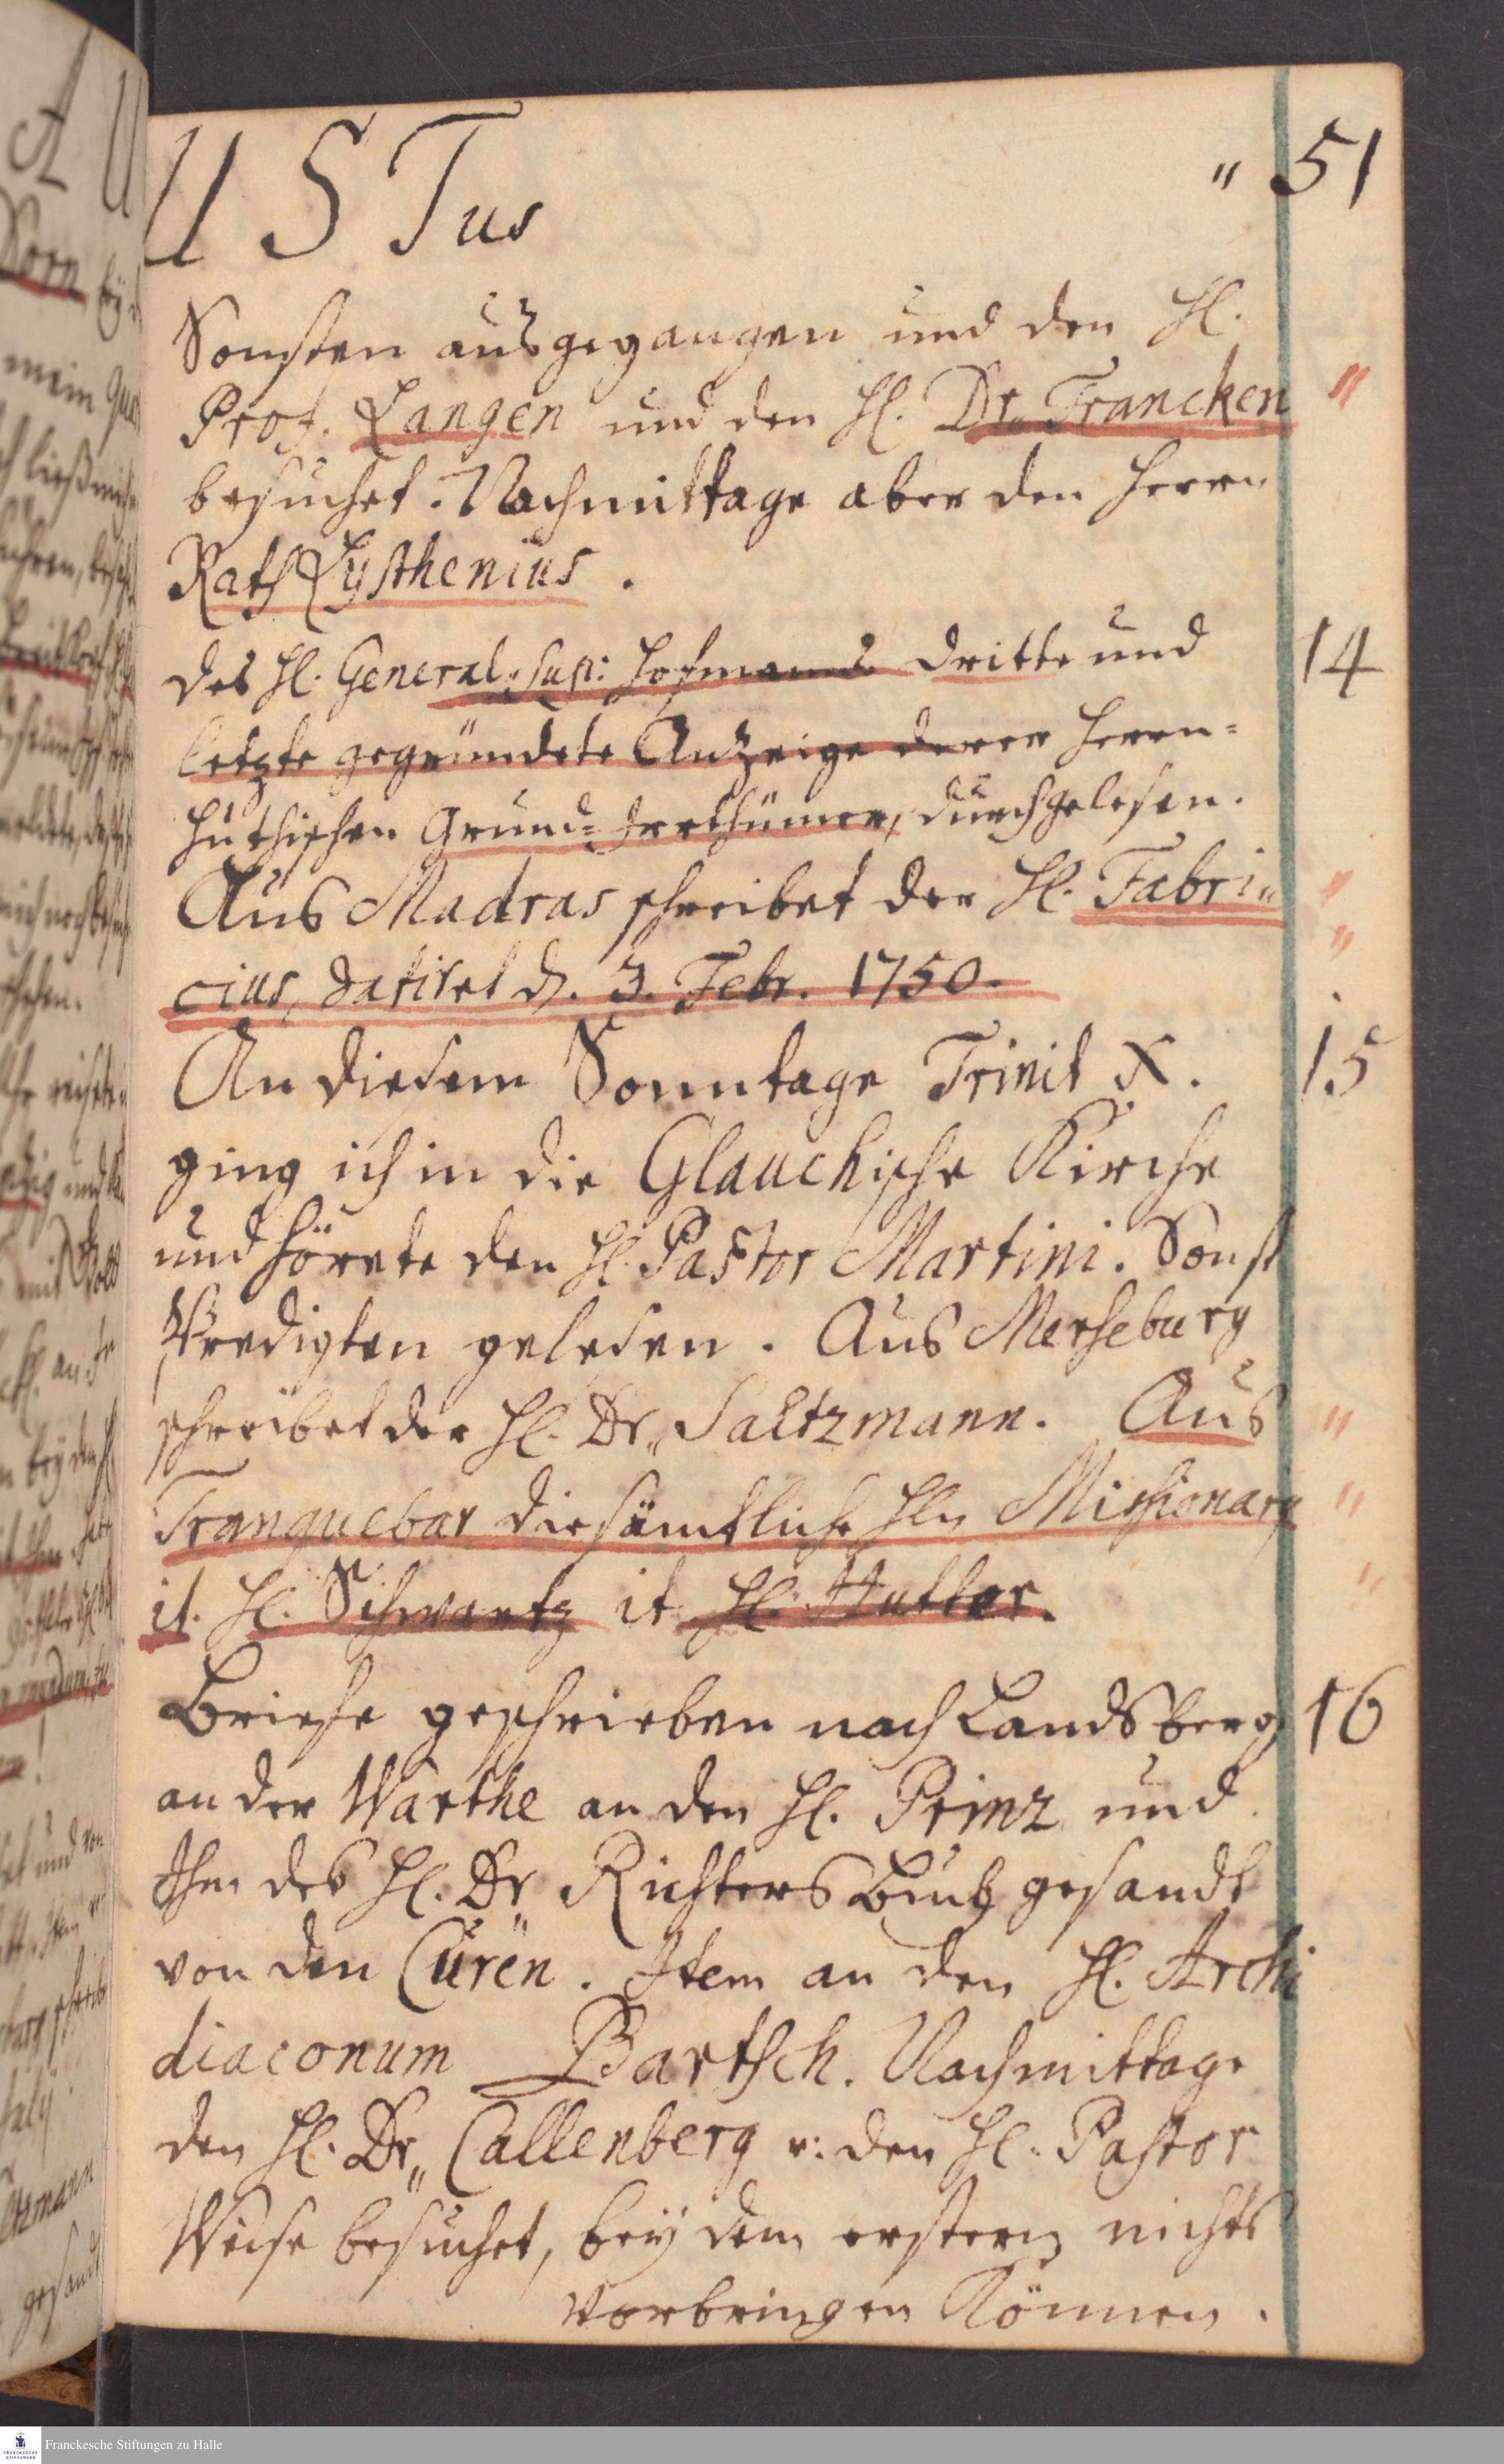 USTus " 51
Sonsten ausgegangen und den Hl.
Prof. Langen und den Hl. Dr. Francken
besuchet. Nachmittage aber den Herrn
Rath Lysthenius.
des Hl. General-Sup: Hofmanns dritte und 14
letzte gegründete Anzeige derer Herrn=
huthischen Grund=Irrthümer, durchgelesen.
Aus Madras schreibet der Hl. Fabri"
cius, datiret d. 3. Febr. 1750.
An diesem Sonntage Trinit X. 15
ging ich in die Glauchische Kirche
und hörete den Hl. Pastor Martini. Sonst
Predigten gelesen. Aus Merseburg
schreibet der Hl. Dr. Saltzmann. Aus
Tranquebar die sämtliche Hln Missionarij
it. Hl. Schwartz it Hl. Hutter.
Briefe geschrieben nach Landsberg 16
an der Warthe an den Hl. Prinz und
Ihm des Hl. Dr. Richters Buch gesandt
von den Curen. Item an den Hl. Archi
diaconum Bartsch. Nachmittage
den Hl. Dr. Callenberg u: den Hl. Pastor
Weise besuchet, bey dem erstern nichts
vorbringen können.
Franckesche Stiftungen zu Halle